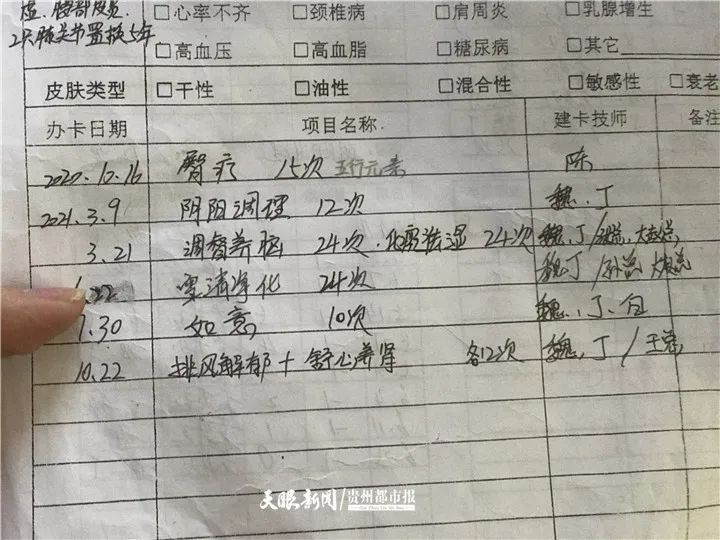 □心率不齐 □颈椎病 □肩周炎 □乳腺增生
2次膝关节置换5年
□高血压 □高血脂 □糖尿病 □其它
皮肤类型 □干性 □油性 □混合性 □敏感性 □衰老
办卡日期 项目名称 建卡技师 备注
2020.10.16 臀疗 15次 五行元素 陈
2021.3.9 阴阳调理 12次 魏、丁
3.21 调督养脑 24次 祛湿 24次 魏、丁
22 净化 24次 魏丁
7.30 如意 10次 魏、丁、白
10.22 排风解郁+舒心养肾 各12次 魏、丁/王
天眼新闻/贵州都市报